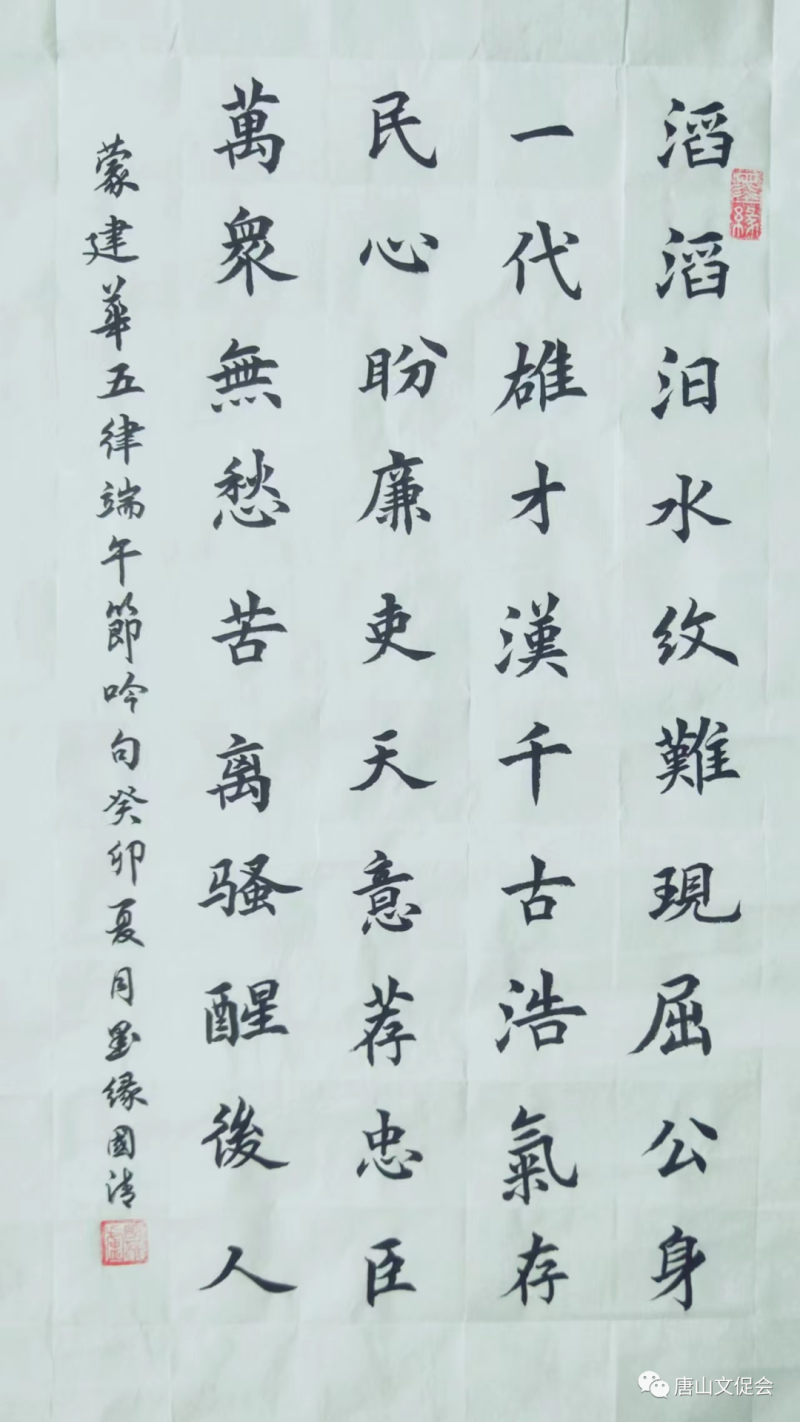 滔滔汨水纹難現屈公身
一代雄才漢千古浩氣存
民心盼廉吏天意荐忠臣
萬衆無愁苦离骚醒後人
蒙建華五律端午節吟句癸卯夏月墨缘國清
墨緣
唐山文促会